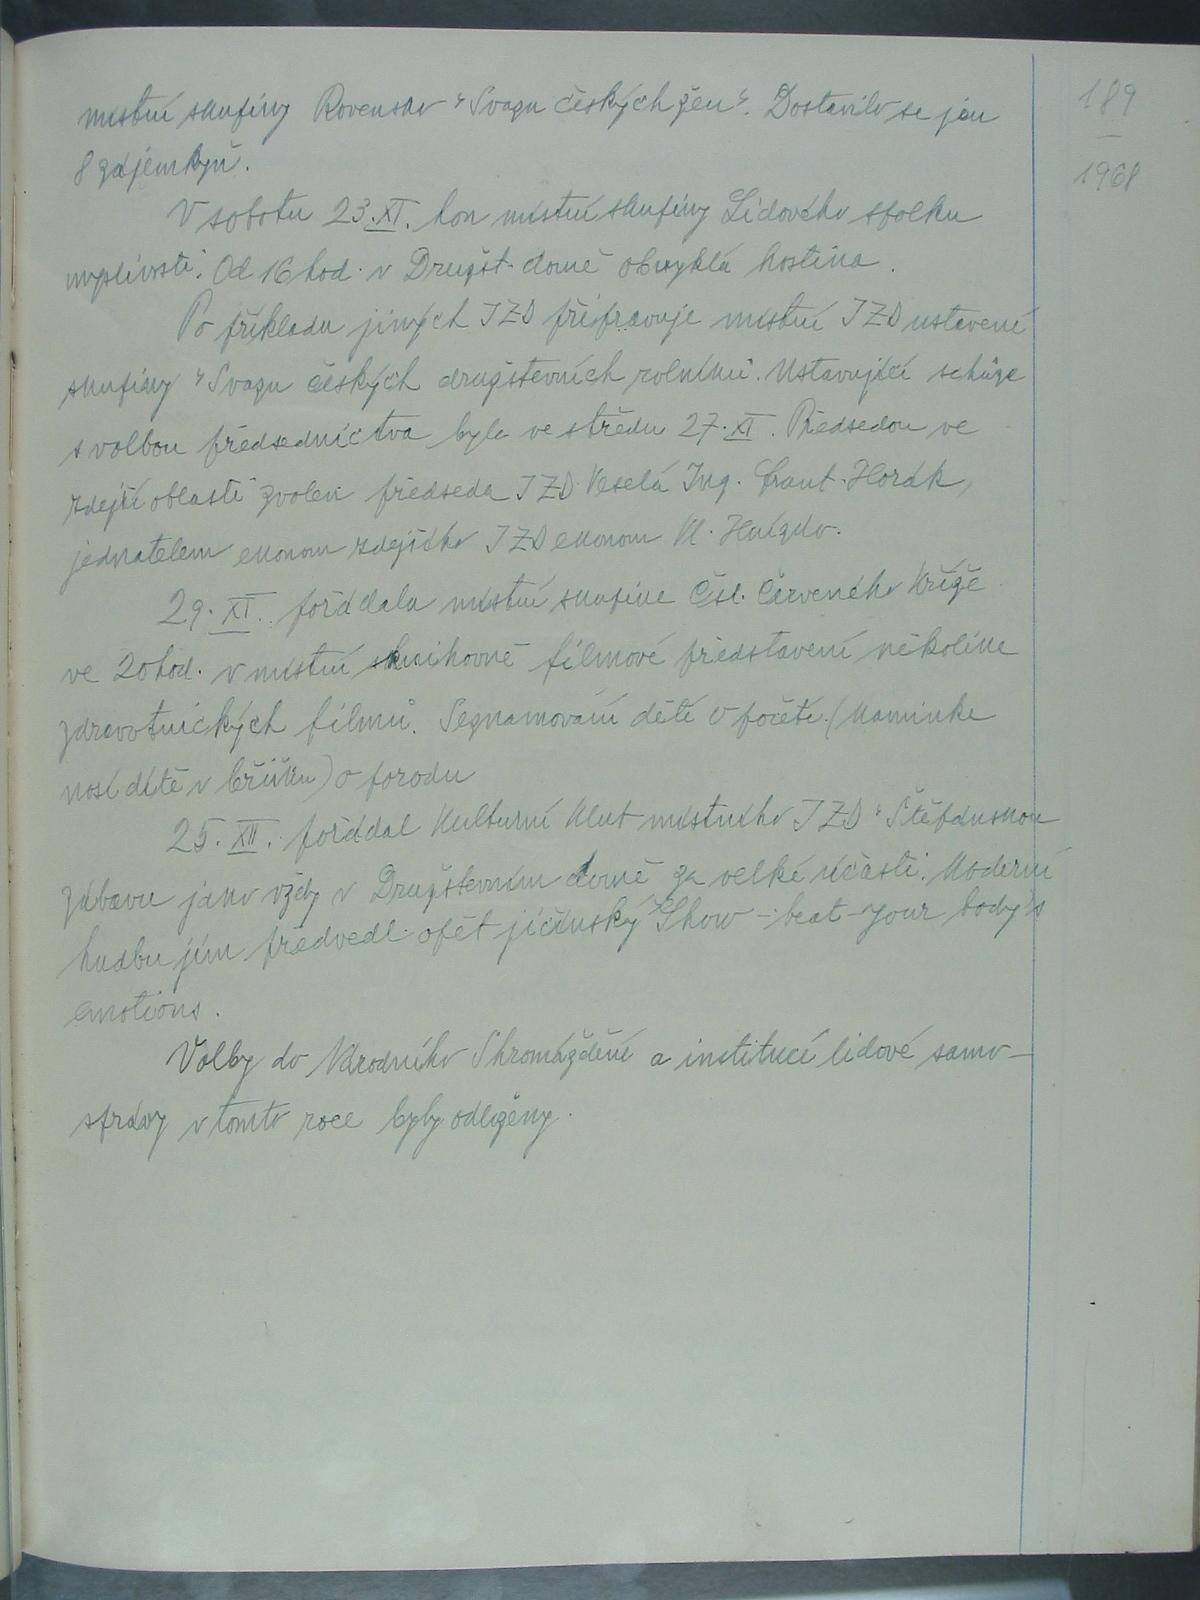 189
1968
místní skupiny Rovensko "Svazu českých žen". Dostavilo se jen
8 zájemkyň.
V sobotu 23.XI. hon místní skupiny Lidového spolku
myslivosti. Od 16 hod. v Družst. domě obvyklá hostina.
Po příkladu jiných JZD připravuje místní JZD ustavení
skupiny "Svazu českých družstevních rolníků. Ustavující schůze
s volbou předsednictva byla ve středu 27.XI. Předsedou ve
zdejší oblasti zvolen předseda JZD Veselá Ing. Frant. Horák,
jednatelem ekonom zdejšího JZD ekonom Vl.
29.XI. pořádala místní skupina Čsl. Červeného Kříže
ve 20 hod. v místní knihovně filmové představení několika
zdravotnických filmů. Seznamování dětí o početí. (Maminka
nosí dítě v bříšku) o porodu
25.XII. pořádal Kulturní klub místního JZD "Štěpánskou
zábavu jako vždy v Družstevním domě za velké účasti. Moderní
hudbu jim předvedl opět jičínský "Show - beat - your body's
emotions.
Volby do Národního Shromáždění a institucí lidové samo-
správy v tomto roce byly odloženy.